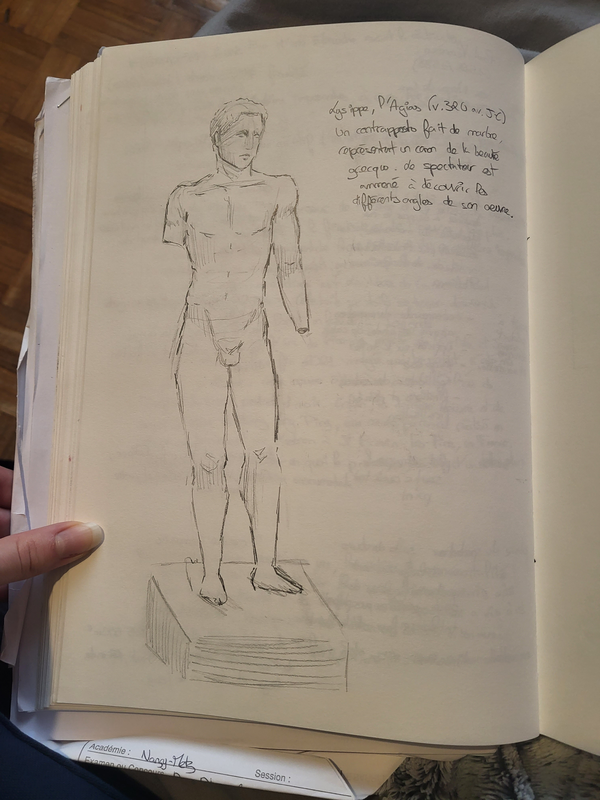 Lysippe, l'Agias (v.320 av. JC)
Un contrapposto fait de marbre,
représentant un canon de la beauté
grecque. Le spectateur est
ammené à découvrir les
différents angles de son oeuvre.
Académie : Nancy-Metz
Examen ou Concours
Session :